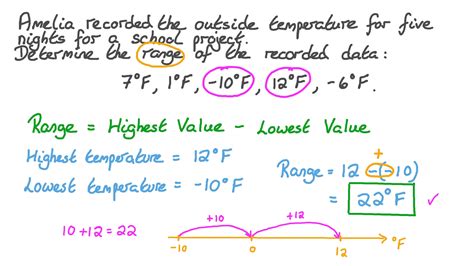 Amelia recorded the outside temperature for five
nights for a school project.
Determine the range of the recorded data:
7°F, 1°F, -10°F, 12°F, -6°F.
Range = Highest Value - Lowest Value
Highest temperature = 12°F
Lowest temperature = -10°F
+
Range = 12 -(-10)
= 22°F ✓
10+12=22
+10 +12
-10 0 12 °F